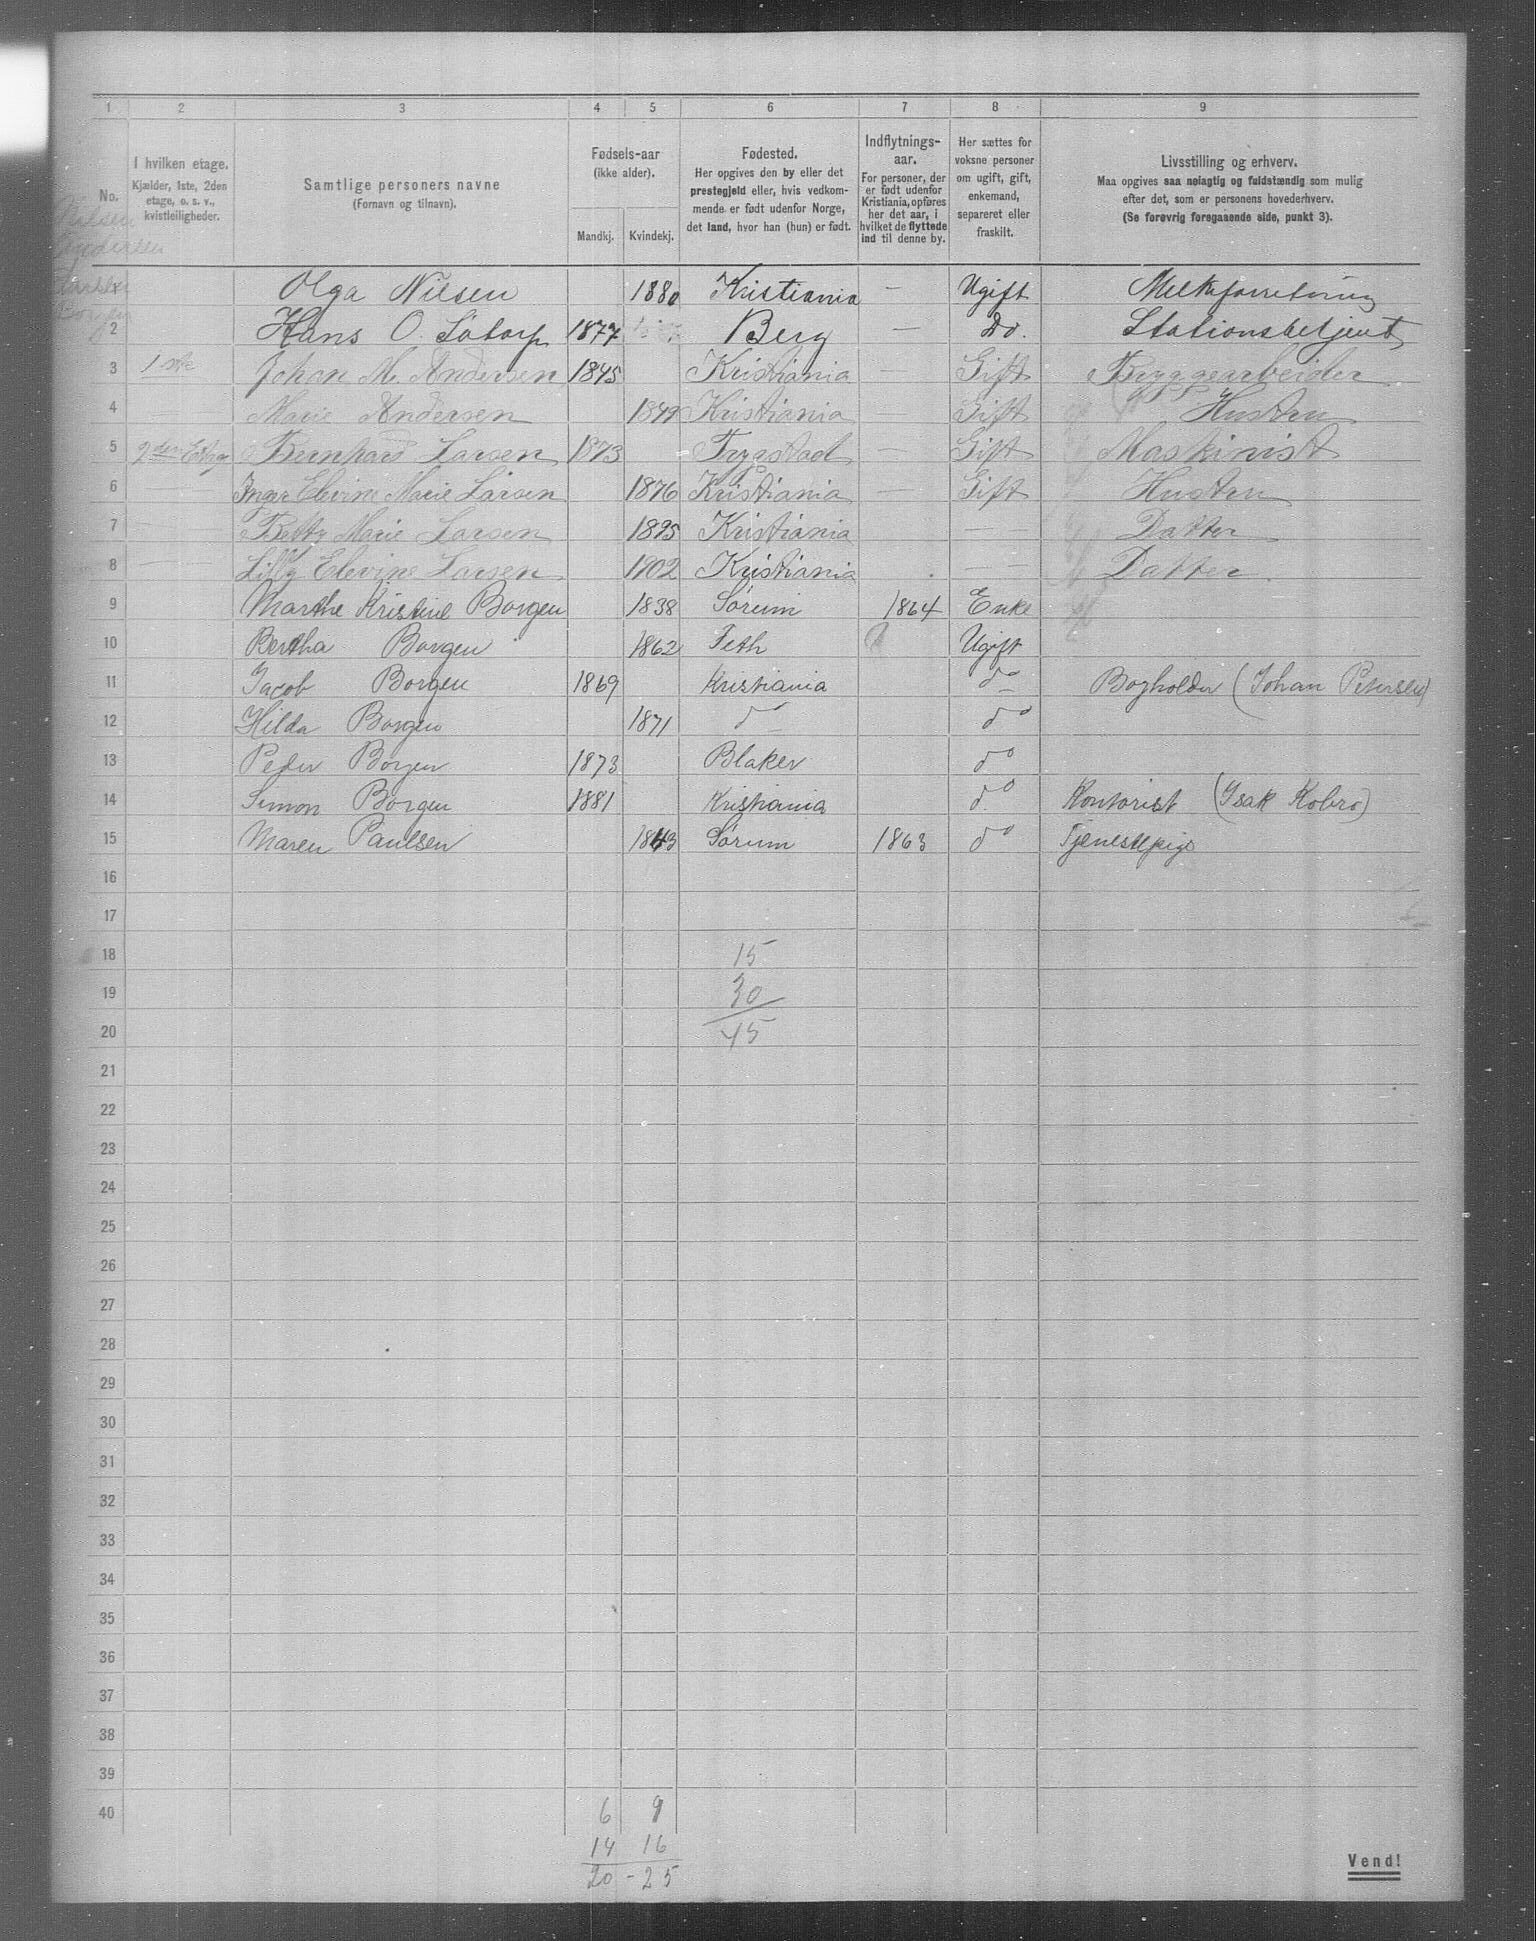 1 2 3 4 5 6 7 8 9
No.
I hvilken etage.
Kjælder, 1ste, 2den
etage, o. s. v.,
kvistleiligheder.
Samtlige personers navne
(Fornavn og tilnavn).
Fødsels-aar
(ikke alder).
Mandkj. Kvindekj.
Fødested.
Her opgives den by eller det
prestegjeld eller, hvis vedkom-
mende er født udenfor Norge,
det land, hvor han (hun) er født.
Indflytnings-
aar.
For personer, der
er født udenfor
Kristiania, opføres
her det aar, i
hvilket de flyttede
ind til denne by.
Her sættes for
voksne personer
om ugift, gift,
enkemand,
separeret eller
fraskilt.
Livsstilling og erhverv.
Maa opgives saa nøiagtig og fuldstændig som mulig
efter det, som er personens hovederhverv.
(Se forøvrig foregaaende side, punkt 3).
Nilsen
Andersen
Borgen
Olga Nilsen 1880 Kristiania — Ugift Melkeforretning
2 Hans O. 1877 Berg — Do. Stationsbetjent
3 1ste Johan M. Andersen 1845 Kristiania — Gift Bryggearbeider
4 Marie Andersen 1849 Kristiania — Gift Hustru
5 2den Etag Bernhard Larsen 1873 Trygstad — Gift Maskinist
6 Inger Elevine Marie Larsen 1876 Kristiania — Gift Hustru
7 Betty Marie Larsen 1895 Kristiania — Datter
8 Lilly Elevine Larsen 1902 Kristiania — Datter
9 Marthe Kristine Borgen 1838 Sørum 1864 Enke
10 Bertha Borgen 1862 Feth Ugift
11 Jacob Borgen 1869 Kristiania do Bogholder (Johan Petersen)
12 Hilda Borgen 1871 do do
13 Peder Borgen 1873 Blaker do
14 Simon Borgen 1881 Kristiania do Kontorist (Isak Kobro)
15 Maren Paulsen 1843 Sørum 1863 do Tjenestepige
16
17
18 15
19 30
20 45
21
22
23
24
25
26
27
28
29
30
31
32
33
34
35
36
37
38
39
40 6 9
14 16
20 - 25
Vend!